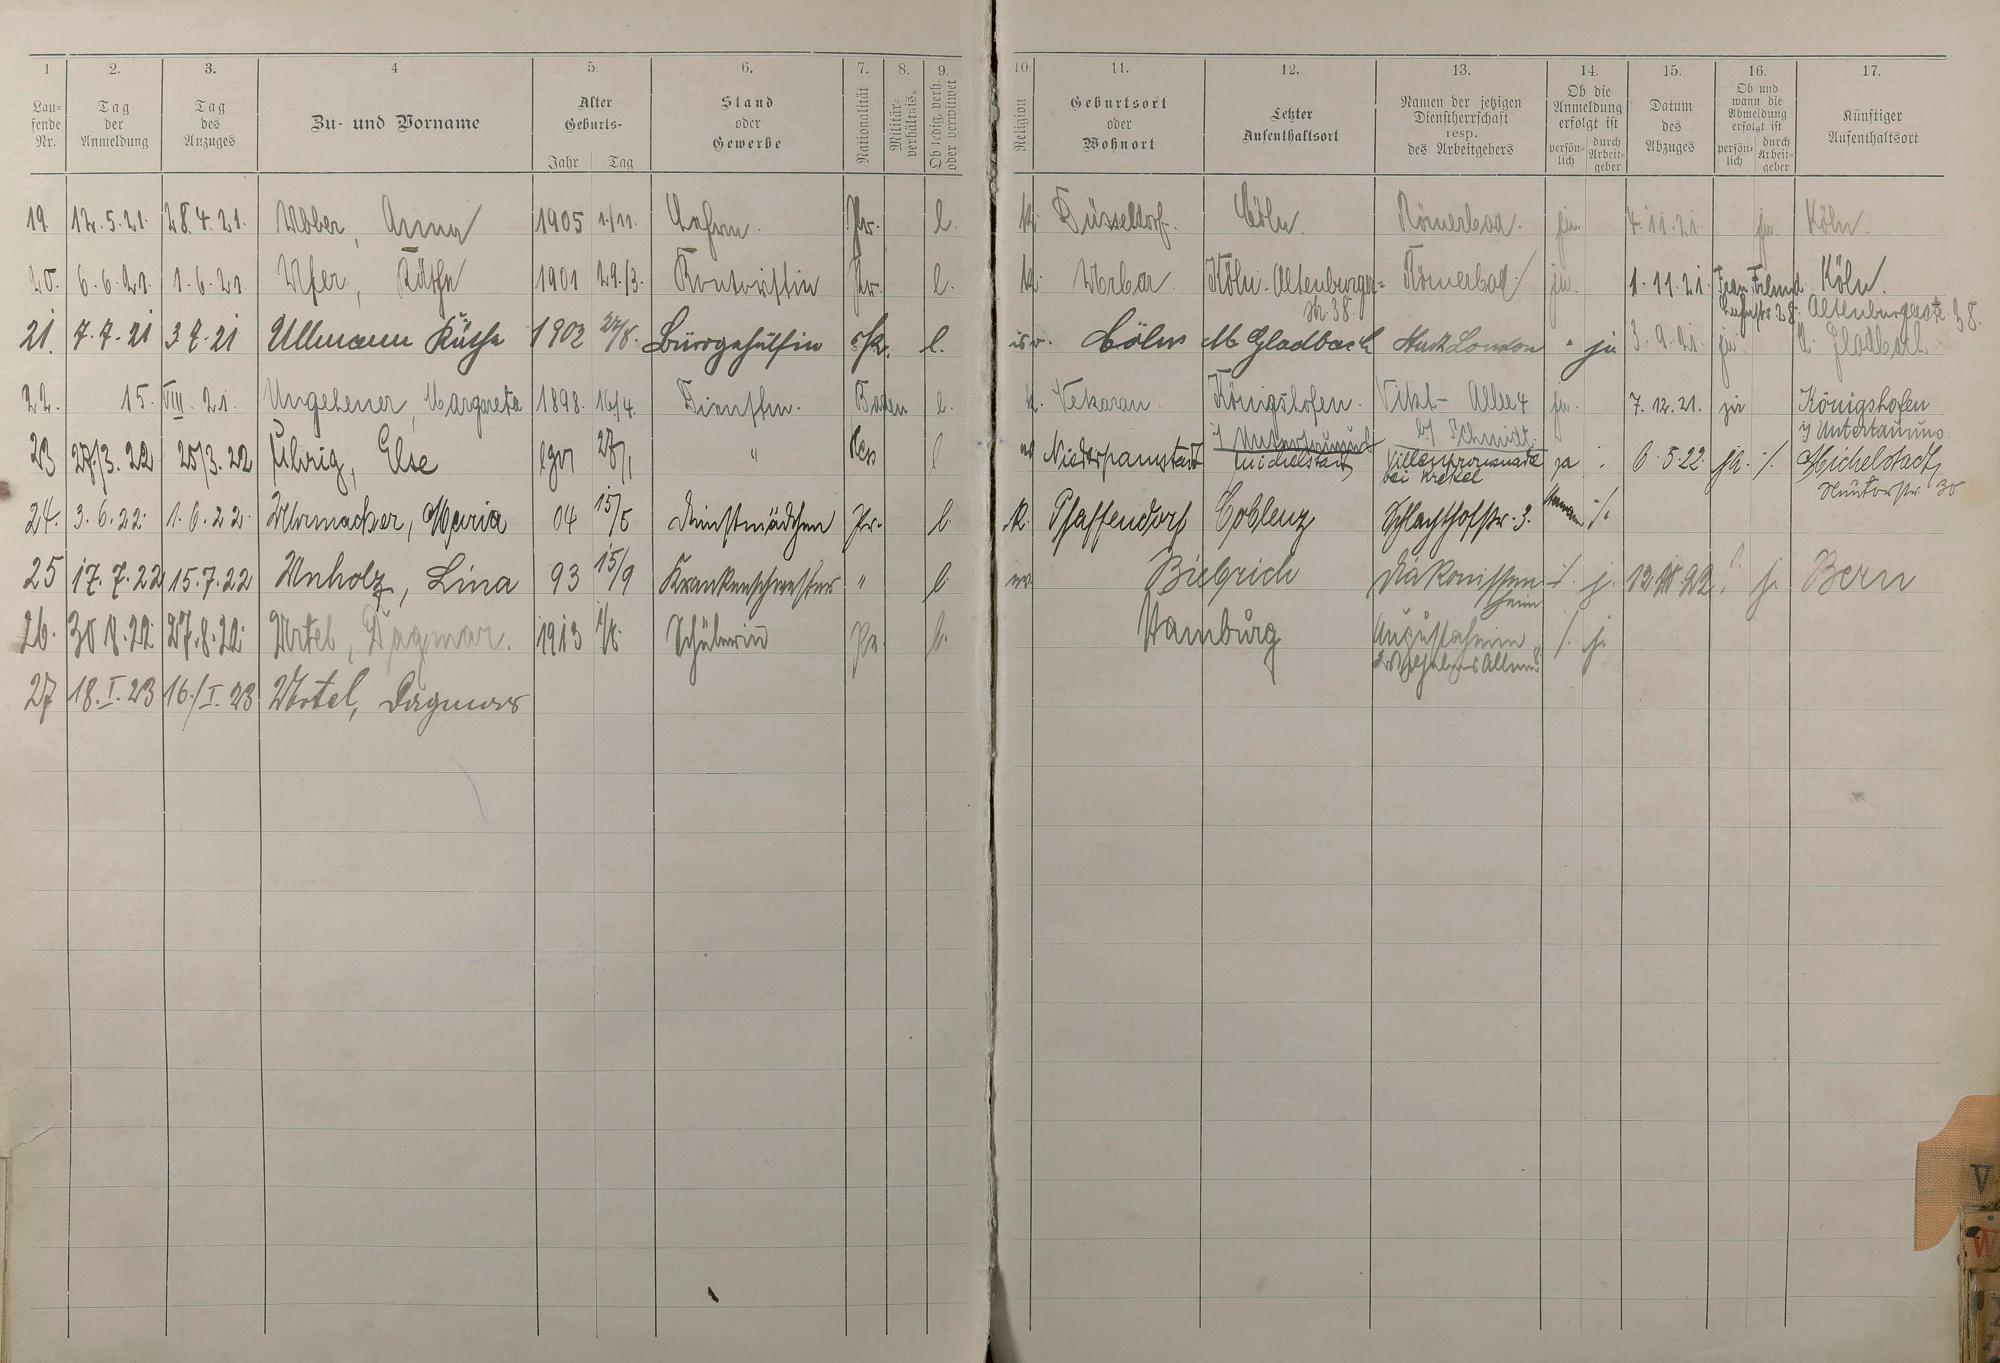 1 2. 3. 4 5. 6. 7. 8. 9. 10. 11. 12. 13. 14. 15. 16. 17.
Lau-
fende
Nr.
Tag
der
Anmeldung
Tag
des
Anzuges
Zu- und Vorname
Alter
Geburts-
Jahr Tag
Stand
oder
Gewerbe
Nationalität
Militär-
verhältnis.
Ob ledig, verh.
oder verwitwet
Religion
Geburtsort
oder
Wohnort
Letzter
Aufenthaltsort
Namen der jetzigen
Dienstherrschaft
resp.
des Arbeitgebers
Ob die
Anmeldung
erfolgt ist
persön-
lich
durch
Arbeit-
geber
Datum
des
Abzuges
Ob und
wann die
Abmeldung
erfolgt ist
persön-
lich
durch
Arbeit-
geber
Künftiger
Aufenthaltsort
19 12.5.21. 28.4.21. Anna 1905 1/11. Pr. l. K. Düsseldorf. Cöln. Römerbad. ja. 7.11.21. ja. Köln.
20. 6.6.21. 1.6.21. Ufer, Käthe 1901 29./3. Kontoristin Pr. l. K. Köln. Altenburger- Römerbad ja. 1.11.21. Frau Köln.
str. 38. 28. Altenburgerstr. 38.
21. 7.7.21 3 7.21 Ullmann Käthe 1902 27/8. Bürogehülfin Pr. l. isr. Cöln M Gladbach London " ja 3.9.21. ja. M. Gladbach
22. 15. VIII. 21. Ungeheuer, Margareta 1898. 16/4. Dienstm. Baden l. k. Königshofen. Vikt- Allee 4 ja. 7.12.21. ja Königshofen
b/ Schmidt.
23 27./3.22 25/3.22 Ührig, Else 27/1 " Hess l ev Michelstadt Villenpromenade ja . 6.5.22. ja. /. Michelstadt,
bei Krekel 30
24. 3.6.22. 1.6.22. Uhrmacher, Maria 04 15/5 Dienstmädchen Pr. l. K. Pfaffendorf Coblenz Schlachthofstr. 3. /.
25 17.7.22 15.7.22 Unholz, Lina 93 15/9 Krankenschwester " l. ev. Biebrich Diakonissen /. j. j. Bern
heim
26. 30 8.22. 27.8.22. Urtel, Dagmar. 1913 1/8. Schülerin Pr. l. Hamburg Augustaheim /. j.
27 18.I.23 16./I.23 Urtel, Dagmar
V
W